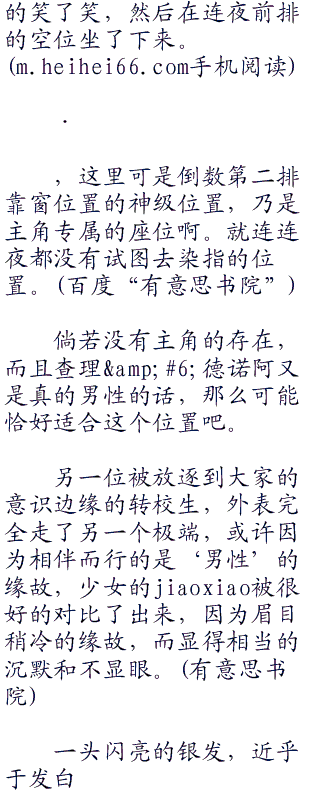 的笑了笑，然后在连夜前排
的空位坐了下来。
(m.heihei66.com手机阅读)
．
，这里可是倒数第二排
靠窗位置的神级位置，乃是
主角专属的座位啊。就连连
夜都没有试图去染指的位
置。(百度“有意思书院”)
倘若没有主角的存在，
而且查理&amp; #6; 德诺阿又
是真的男性的话，那么可能
恰好适合这个位置吧。
另一位被放逐到大家的
意识边缘的转校生，外表完
全走了另一个极端，或许因
为相伴而行的是‘男性’的
缘故，少女的jiaoxiao被很
好的对比了出来，因为眉目
稍冷的缘故，而显得相当的
沉默和不显眼。(有意思书
院)
一头闪亮的银发，近乎
于发白